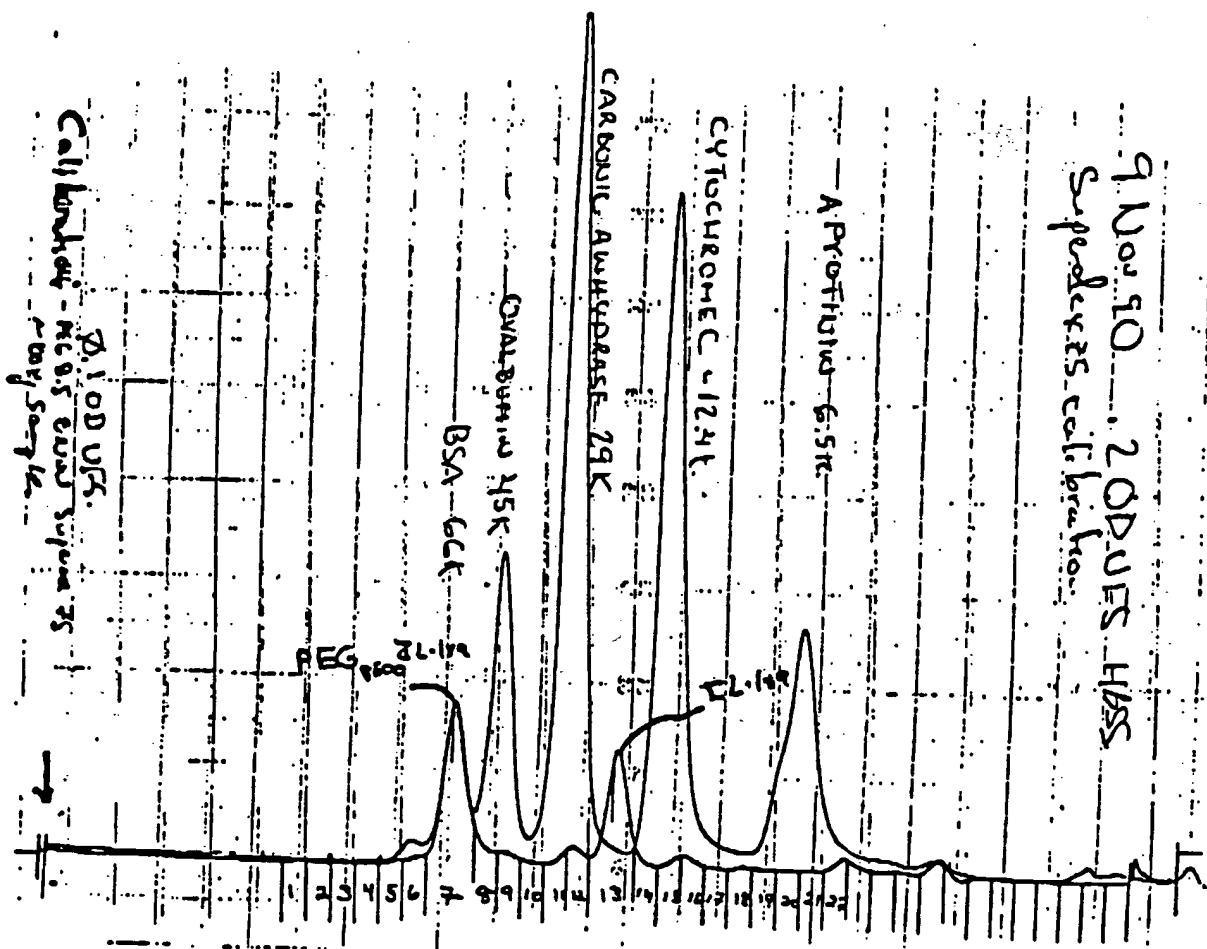 9 Nov 90 .2OD UFS HBSS
Superdex 75 calibration
APROTININ 6.5K
CYTOCHROME C 12.4K
CARBONIC ANHYDRASE 29K
OVALBUMIN 45K
BSA 66K
PEG 8500 IL-1ra
IL-1ra
0.1 OD UFS.
Calibration
1 2 3 4 5 6 7 8 9 10 11 12 13 14 15 16 17 18 19 20 21 22